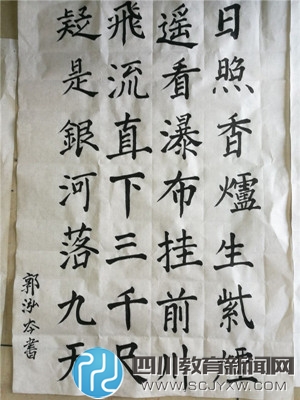 日照香爐生紫煙
遥看瀑布挂前川
飛流直下三千尺
疑是銀河落九天
郭泓本書
四川教育新闻网
WWW.SCJYXW.COM